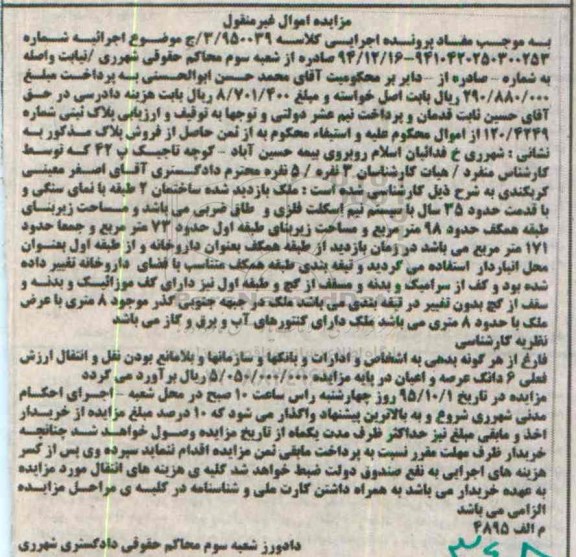 مزایده اموال غیرمنقول
به موجب مفاد پرونده اجرایی کلاسه ۳/۹۵۰۰۳۹/ج موضوع اجرائیه شماره
۹۴۱۰۴۲۰۲۵۰۳۰۰۲۵۳-۹۴/۱۲/۱۶ صادره از شعبه سوم محاکم حقوقی شهرری /نیابت واصله
به شماره - صادره از - دایر بر محکومیت آقای محمد حسن ابوالحسنی به پرداخت مبلغ
۲۹۰/۸۸۰/۰۰۰ ریال بابت اصل خواسته و مبلغ ۸/۷۰۱/۴۰۰ ریال بابت هزینه دادرسی در حق
آقای حسین ثابت قدمان و پرداخت نیم عشر دولتی و توجها به توقیف و ارزیابی پلاک ثبتی شماره
۱۲۰/۴۲۴۹ از اموال محکوم علیه و استیفاء محکوم به از ثمن حاصل از فروش پلاک مذکور به
نشانی : شهرری خ فدائیان اسلام روبروی بیمه حسین آباد - کوچه تاجیک پ ۴۲ که توسط
کارشناس منفرد / هیات کارشناسان ۳ نفره / ۵ نفره محترم دادگستری آقای اصغر معینی
کربکندی به شرح ذیل کارشناسی شده است : ملک بازدید شده ساختمان ۲ طبقه با نمای سنگی و
با قدمت حدود ۳۵ سال با سیستم نیم اسکلت فلزی و طاق ضربی می باشد و مساحت زیربنای
طبقه همکف حدود ۹۸ متر مربع و مساحت زیربنای طبقه اول حدود ۷۳ متر مربع و جمعا حدود
۱۷۱ متر مربع می باشد در زمان بازدید از طبقه همکف بعنوان داروخانه و از طبقه اول بعنوان
محل انباردار استفاده می گردید و تیغه بندی طبقه همکف متناسب با فضای داروخانه تغییر داده
شده بود و کف از سرامیک و بدنه و سقف از گچ و طبقه اول نیز دارای کف موزائیک و بدنه و
سقف از گچ بدون تغییر در تیغه بندی می باشد ملک در جبهه جنوبی گذر موجود ۸ متری با عرض
ملک با حدود ۸ متری می باشد ملک دارای کنتورهای آب و برق و گاز می باشد
نظریه کارشناسی
فارغ از هر گونه بدهی به اشخاص و ادارات و بانکها و سازمانها و بلامانع بودن نقل و انتقال ارزش
فعلی ۶ دانگ عرصه و اعیان در پایه مزایده ۵/۰۵۰/۰۰۰/۰۰۰ ریال برآورد می گردد
مزایده در تاریخ ۹۵/۱۰/۱ روز چهارشنبه راس ساعت ۱۰ صبح در محل شعبه - اجرای احکام
مدنی شهرری شروع و به بالاترین پیشنهاد واگذار می شود که ۱۰ درصد مبلغ مزایده از خریدار
اخذ و مابقی مبلغ نیز حداکثر ظرف مدت یکماه از تاریخ مزایده وصول خواهد شد چنانچه
خریدار ظرف مهلت مقرر نسبت به پرداخت مابقی ثمن مزایده اقدام ننماید سپرده وی پس از کسر
هزینه های اجرایی به نفع صندوق دولت ضبط خواهد شد کلیه ی هزینه های انتقال مورد مزایده
به عهده خریدار می باشد به همراه داشتن کارت ملی و شناسنامه در کلیه ی مراحل مزایده
الزامی می باشد
م الف ۴۸۹۵
دادورز شعبه سوم محاکم حقوقی دادگستری شهرری